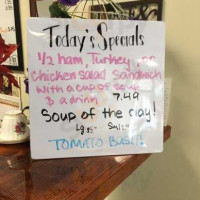 Today's Specials
1/2 ham, Turkey, or
chicken salad Sandwich
with a cup of soup
& a drink 7.49
Soup of the day!
Lg. Sm.
TOMATO BASIL